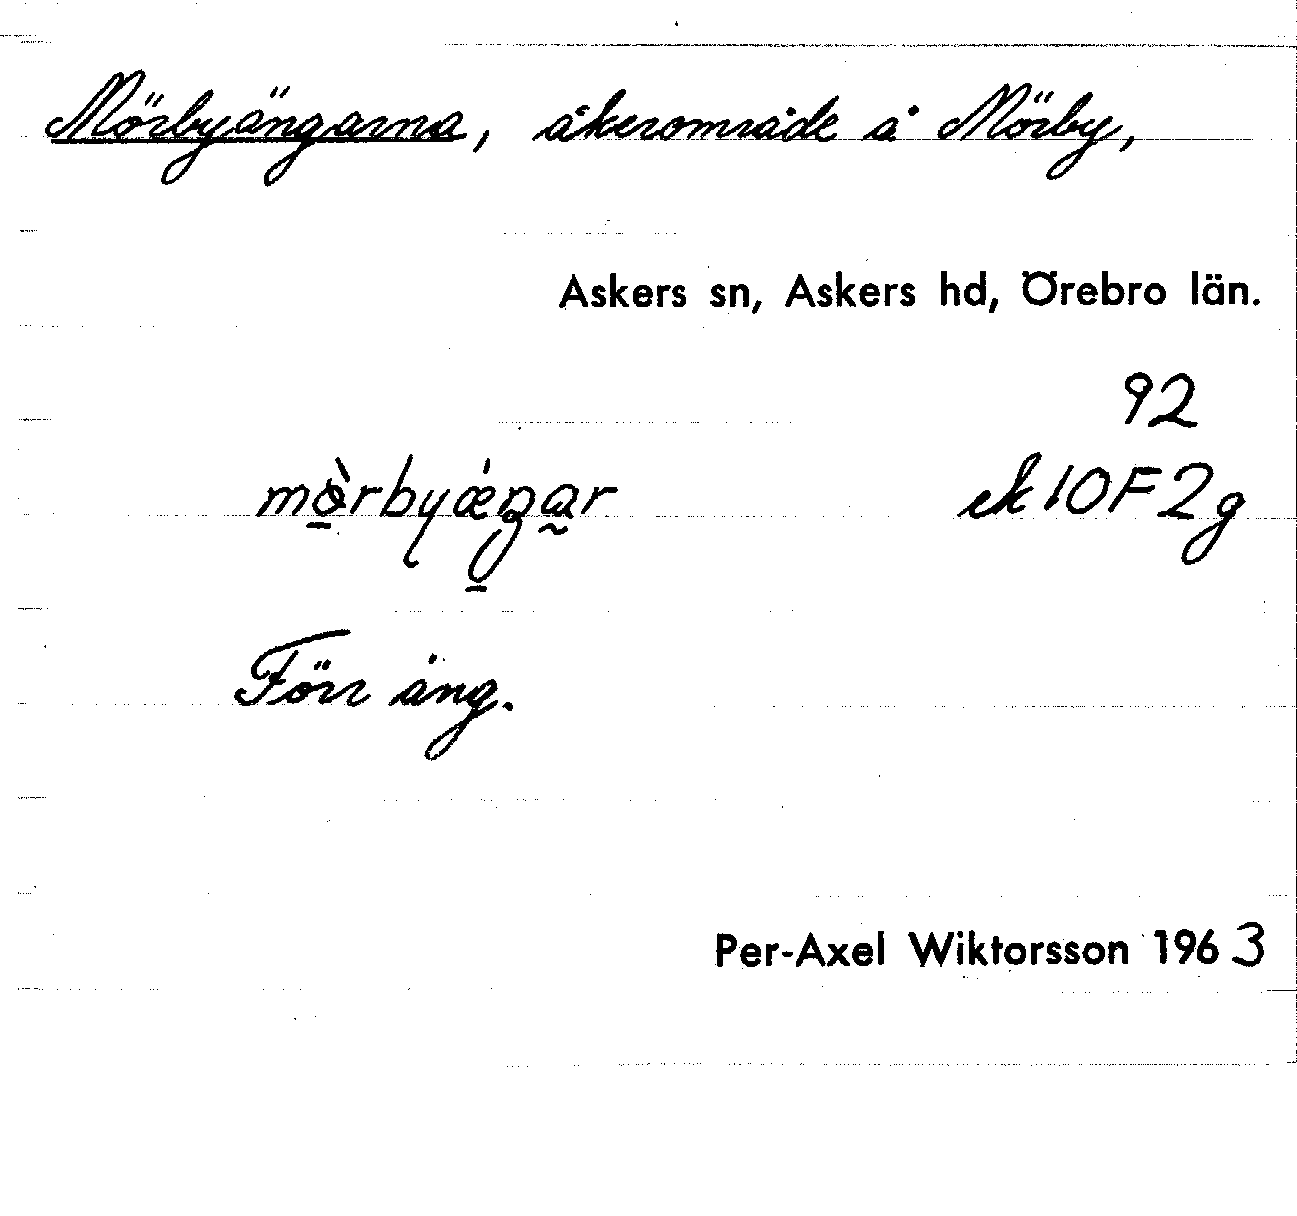 Mörbyängarna, åkerområde å Mörby,
Askers sn, Askers hd, Örebro län.
92
mò̠rbyǽŋ̠a̰r ek 10F2g
Förr äng.
Per-Axel Wiktorsson 1963